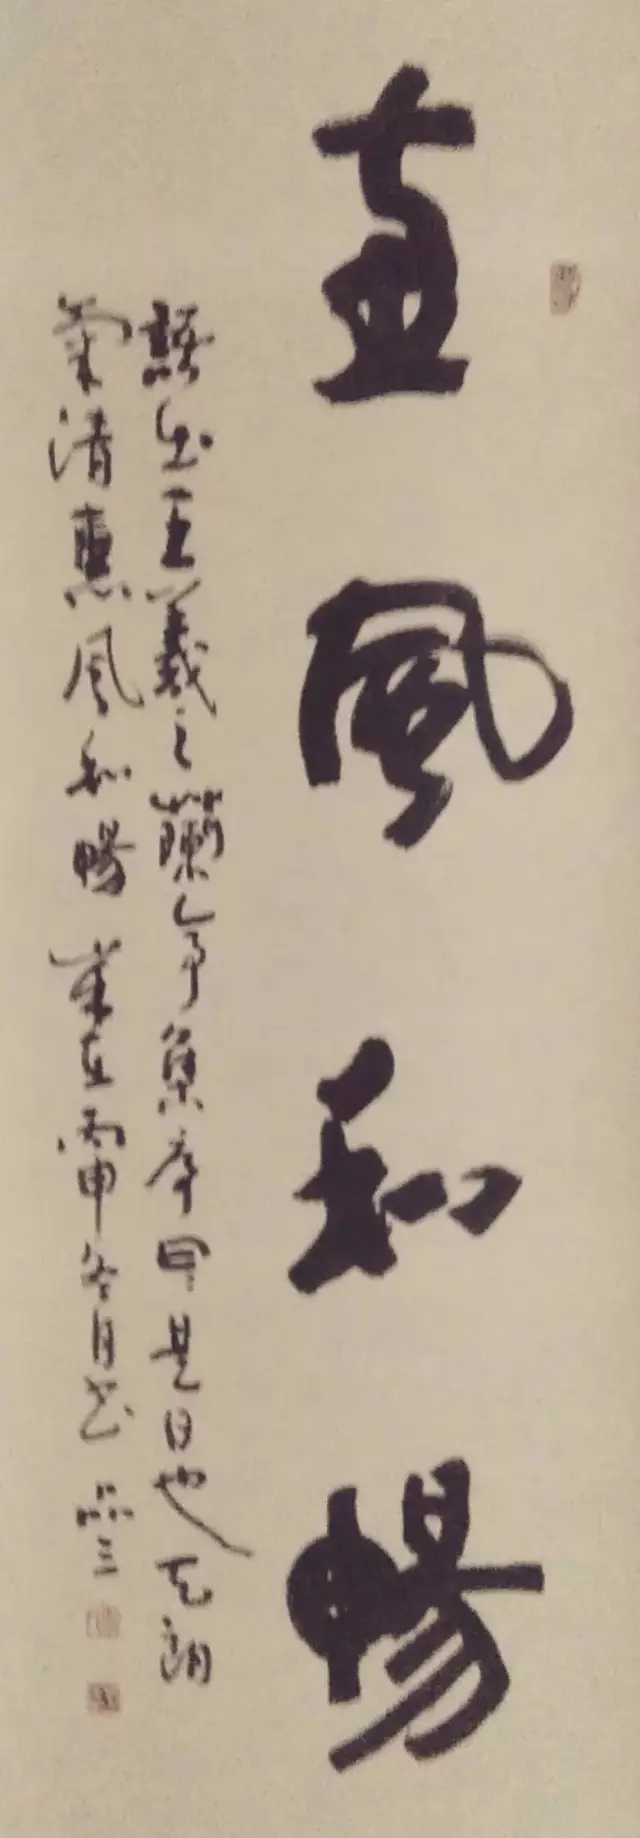 惠風和暢
語出王羲之蘭亭集序曰是日也天朗
氣清惠風和暢歲在丙申冬月書品三